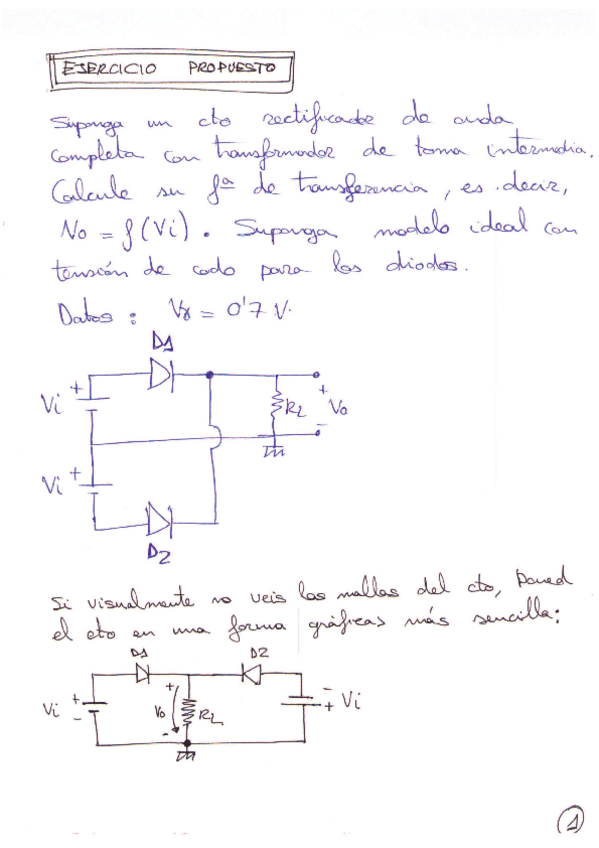 EJERCICIO PROPUESTO
Suponga un cto rectificador de onda
completa con transformador de toma intermedia.
Calcule su fª de transferencia, es decir,
No = f(Vi). Suponga modelo ideal con
tensión de codo para los diodos.
Datos: Vγ = 0'7 V.
D1
Vi + RL + Vo -
Vi +
D2
Si visualmente no veis las mallas del cto, poned
el cto en una forma gráficas más sencilla:
D1 D2
Vi + - + Vo - RL - + Vi
1